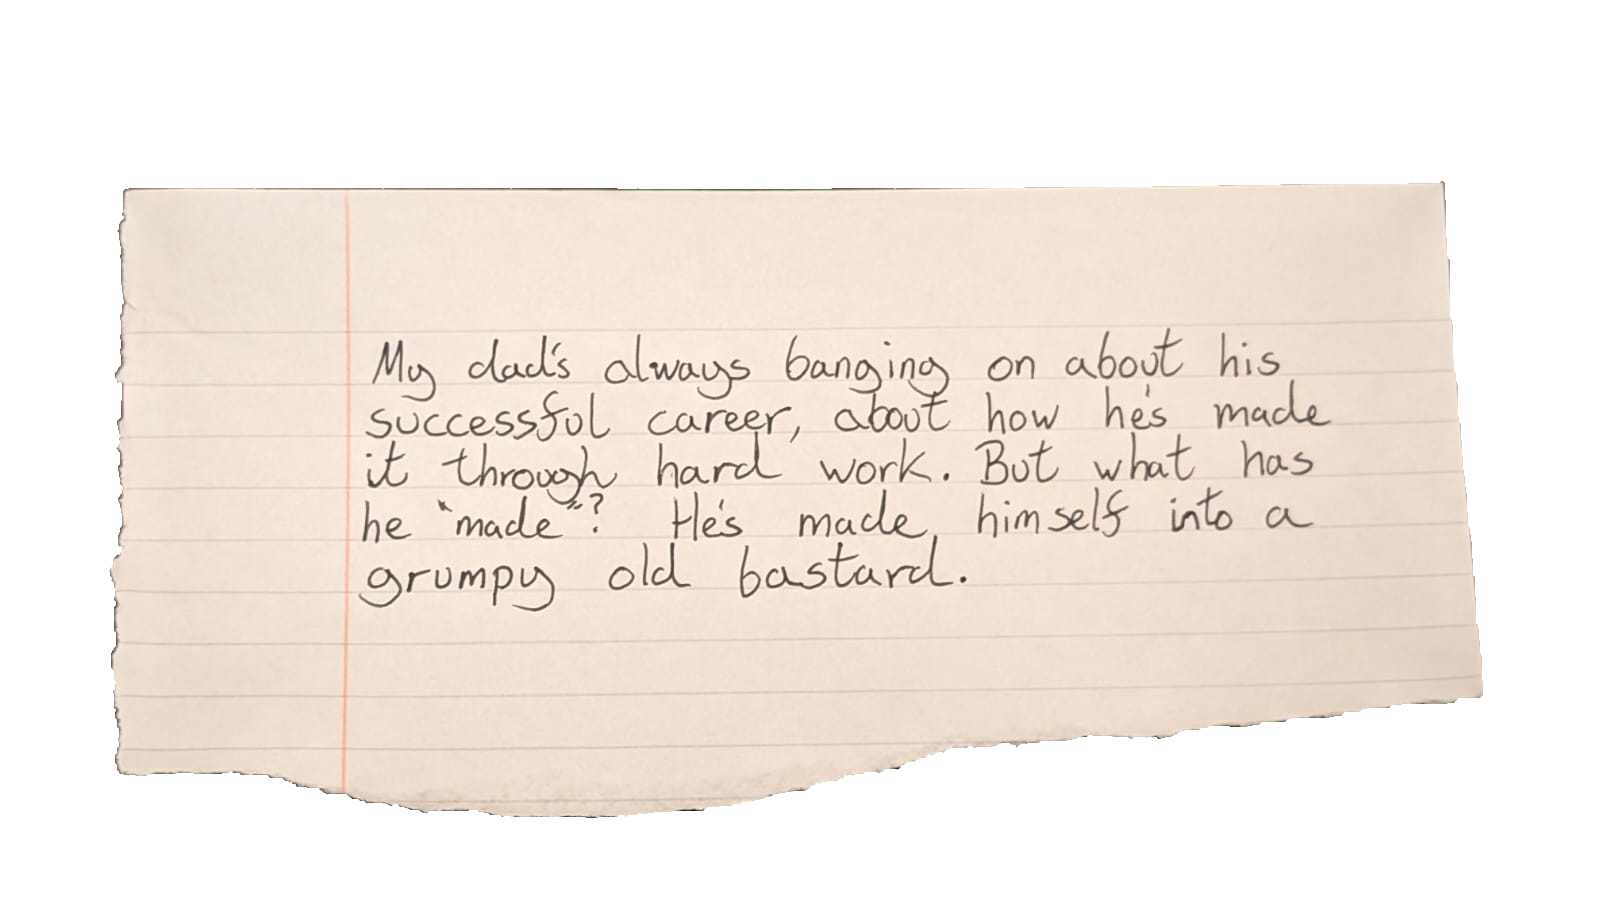 My dad's always banging on about his
successful career, about how he's made
it through hard work. But what has
he "made"? He's made himself into a
grumpy old bastard.